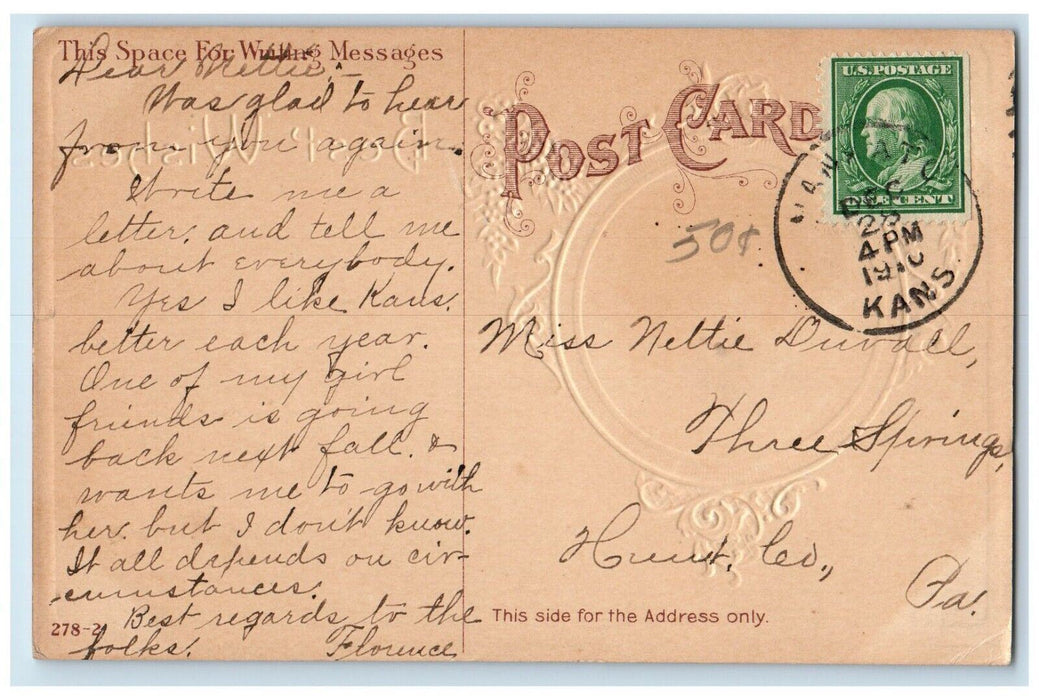 This Space For Writing Messages
Dear Nettie:-
Was glad to hear
from you again.
Write me a
letter, and tell me
about everybody.
Yes I like Kans.
better each year.
One of my girl
friends is going
back next fall. &
wants me to go with
her. but I don't know.
It all depends on cir-
cumstances.
Best regards to the
folks. Florence
278-2
Best Wishes
POST CARD
U.S. POSTAGE
CENT
DEC
28
4 PM
1910
KANS
50¢
Miss Nettie Duvall,
Three Springs,
Hunt. Co.,
Pa.
This side for the Address only.